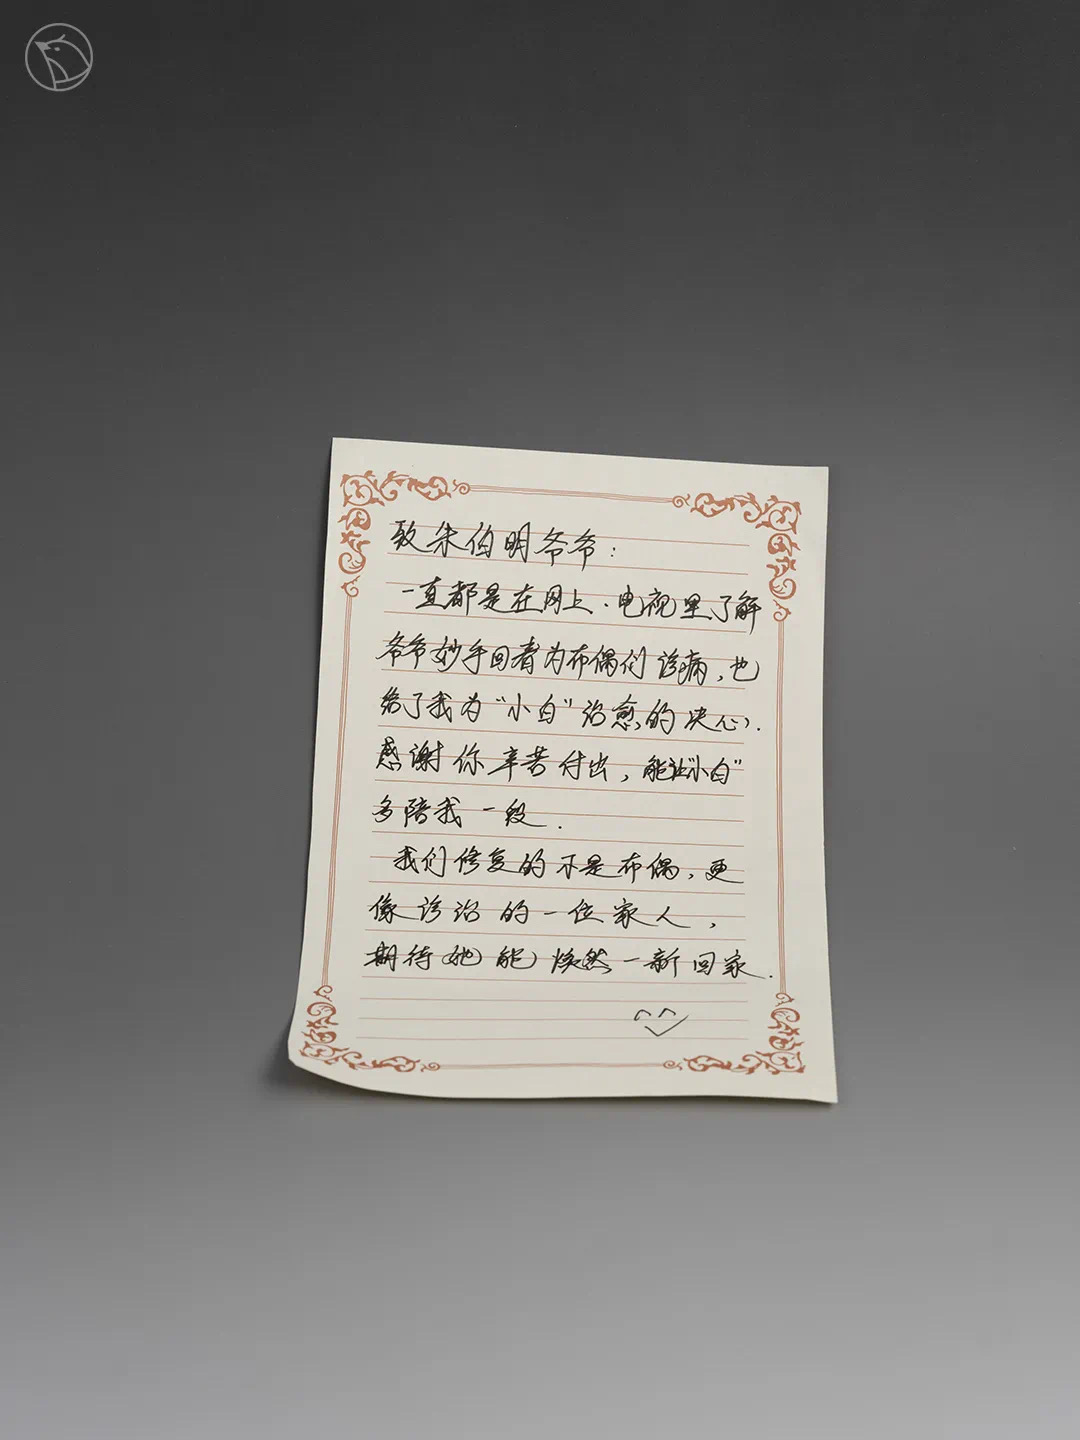 致朱伯明爷爷：
一直都是在网上.电视里了解
爷爷妙手回春为布偶们诊病，也
给了我为“小白”治愈的决心.
感谢你辛苦付出，能让“小白”
多陪我一段.
我们修复的不是布偶，更
像诊治的一位家人，
期待她能焕然一新回家.